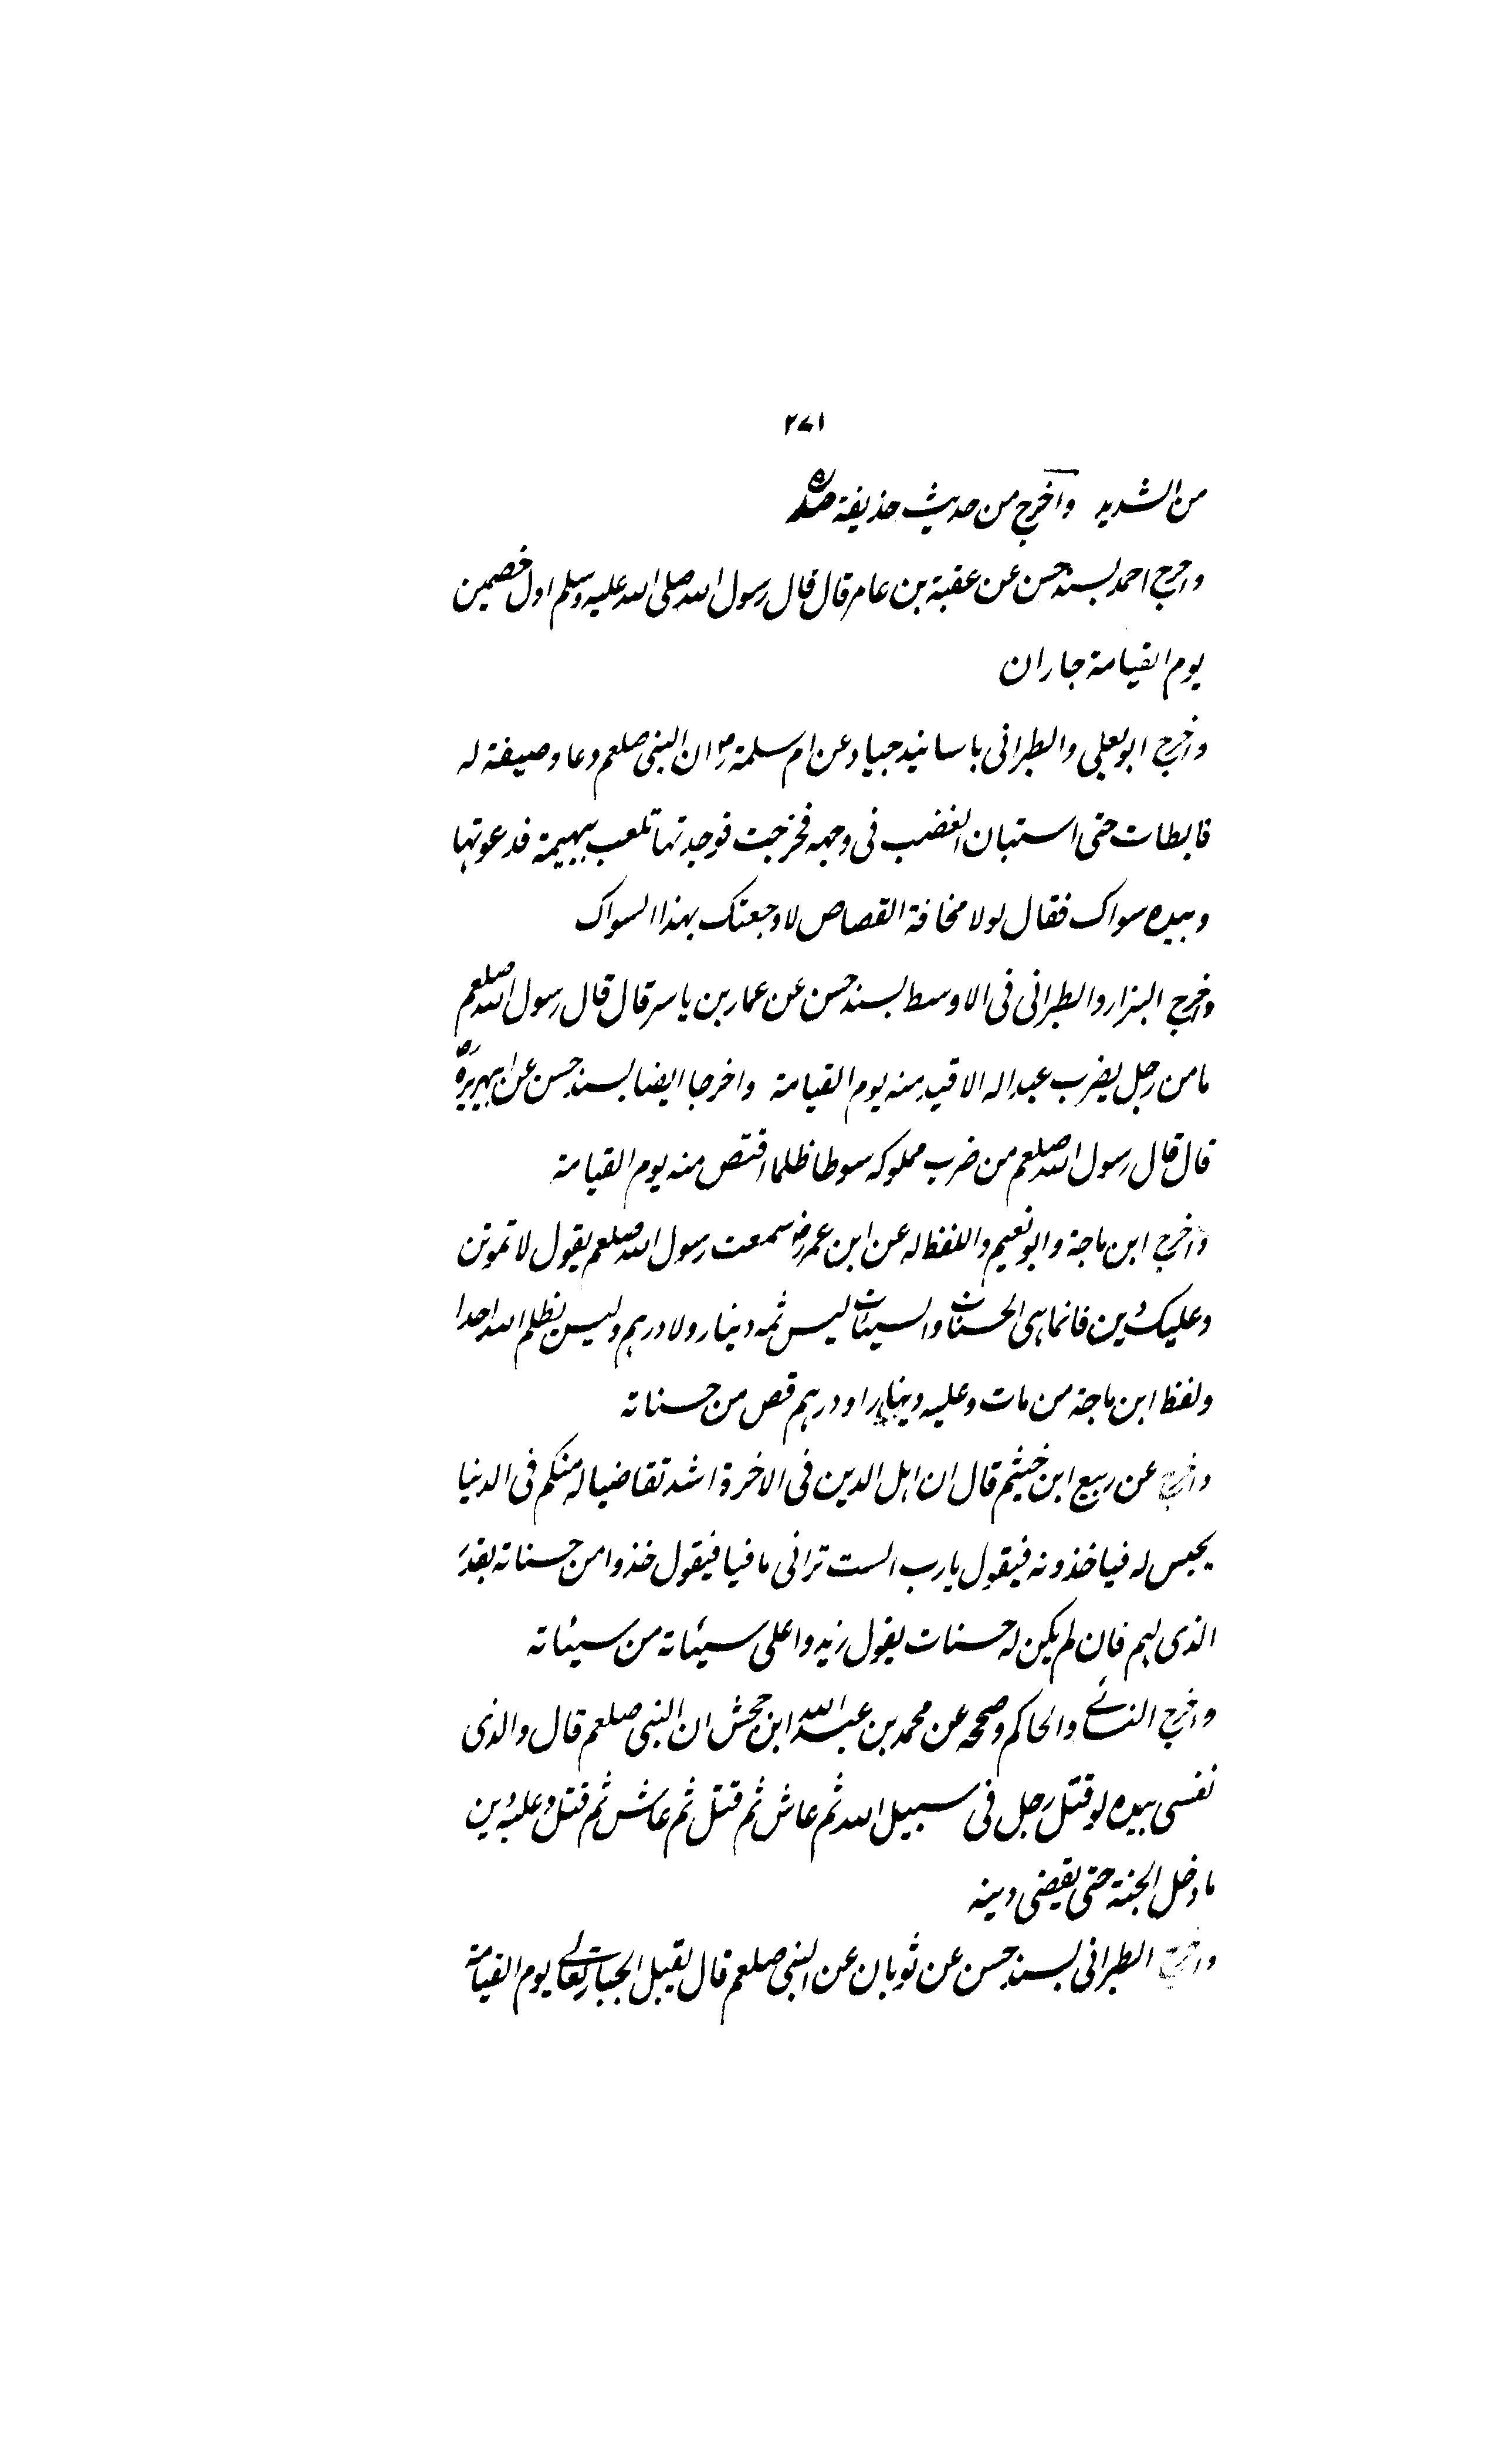 ۲۷۱
من الشدید واخرج من حدیث حذیفة مثله
واخرج احمد بسند حسن عن عقبة بن عامر قال قال رسول الله صلی الله علیه وسلم اول خصمین
یوم القیامة جاران
واخرج ابو یعلی والطبرانی باسانید جیاد عن ام سلمة رض ان النبی صلعم دعا وصیفة له
فابطات حتی استبان الغضب فی وجهه فخرجت فوجدتها تلعب ببهیمة فدعوتها
وبیده سواک فقال لولا مخافة القصاص لاوجعتک بهذا السواک
واخرج البزار والطبرانی فی الاوسط بسند حسن عن عمار بن یاسر قال قال رسول الله صلعم
ما من رجل یضرب عبدا له الا قید منه یوم القیامة واخرجا ایضا بسند حسن عن ابی هریرة رض
قال قال رسول الله صلعم من ضرب مملوکه سوطا ظلما اقتص منه یوم القیامة
واخرج ابن ماجة وابو نعیم واللفظ له عن ابن عمر رض سمعت رسول الله صلعم یقول لا تموتن
وعلیک دین فانما هی الحسنات والسیئات لیس ثمه دینار ولا درهم ولیس یظلم الله احدا
ولفظ ابن ماجة من مات وعلیه دینار او درهم قص من حسناته
واخرج عن ربیع ابن خیثم قال ان اهل الدین فی الاخرة اشد تقاضیا له منکم فی الدنیا
یحبس له فیاخذونه فیقول یارب الست ترانی مافیا فیقول خذوا من حسناته بقدر
الذی لهم فان لم یکن له حسنات یقول زیدوا علی سیئاته من سیئاته
واخرج النسائے والحاکم وصححه عن محمد بن عبد الله ابن جحش ان النبی صلعم قال والذی
نفسی بیده لو قتل رجل فی سبیل الله ثم عاش ثم قتل ثم عاش ثم قتل وعلیه دین
ما دخل الجنة حتی یقضی دینه
واخرج الطبرانی بسند حسن عن ثوبان عن النبی صلعم قال یقبل الجبار تعالے یوم القیامة